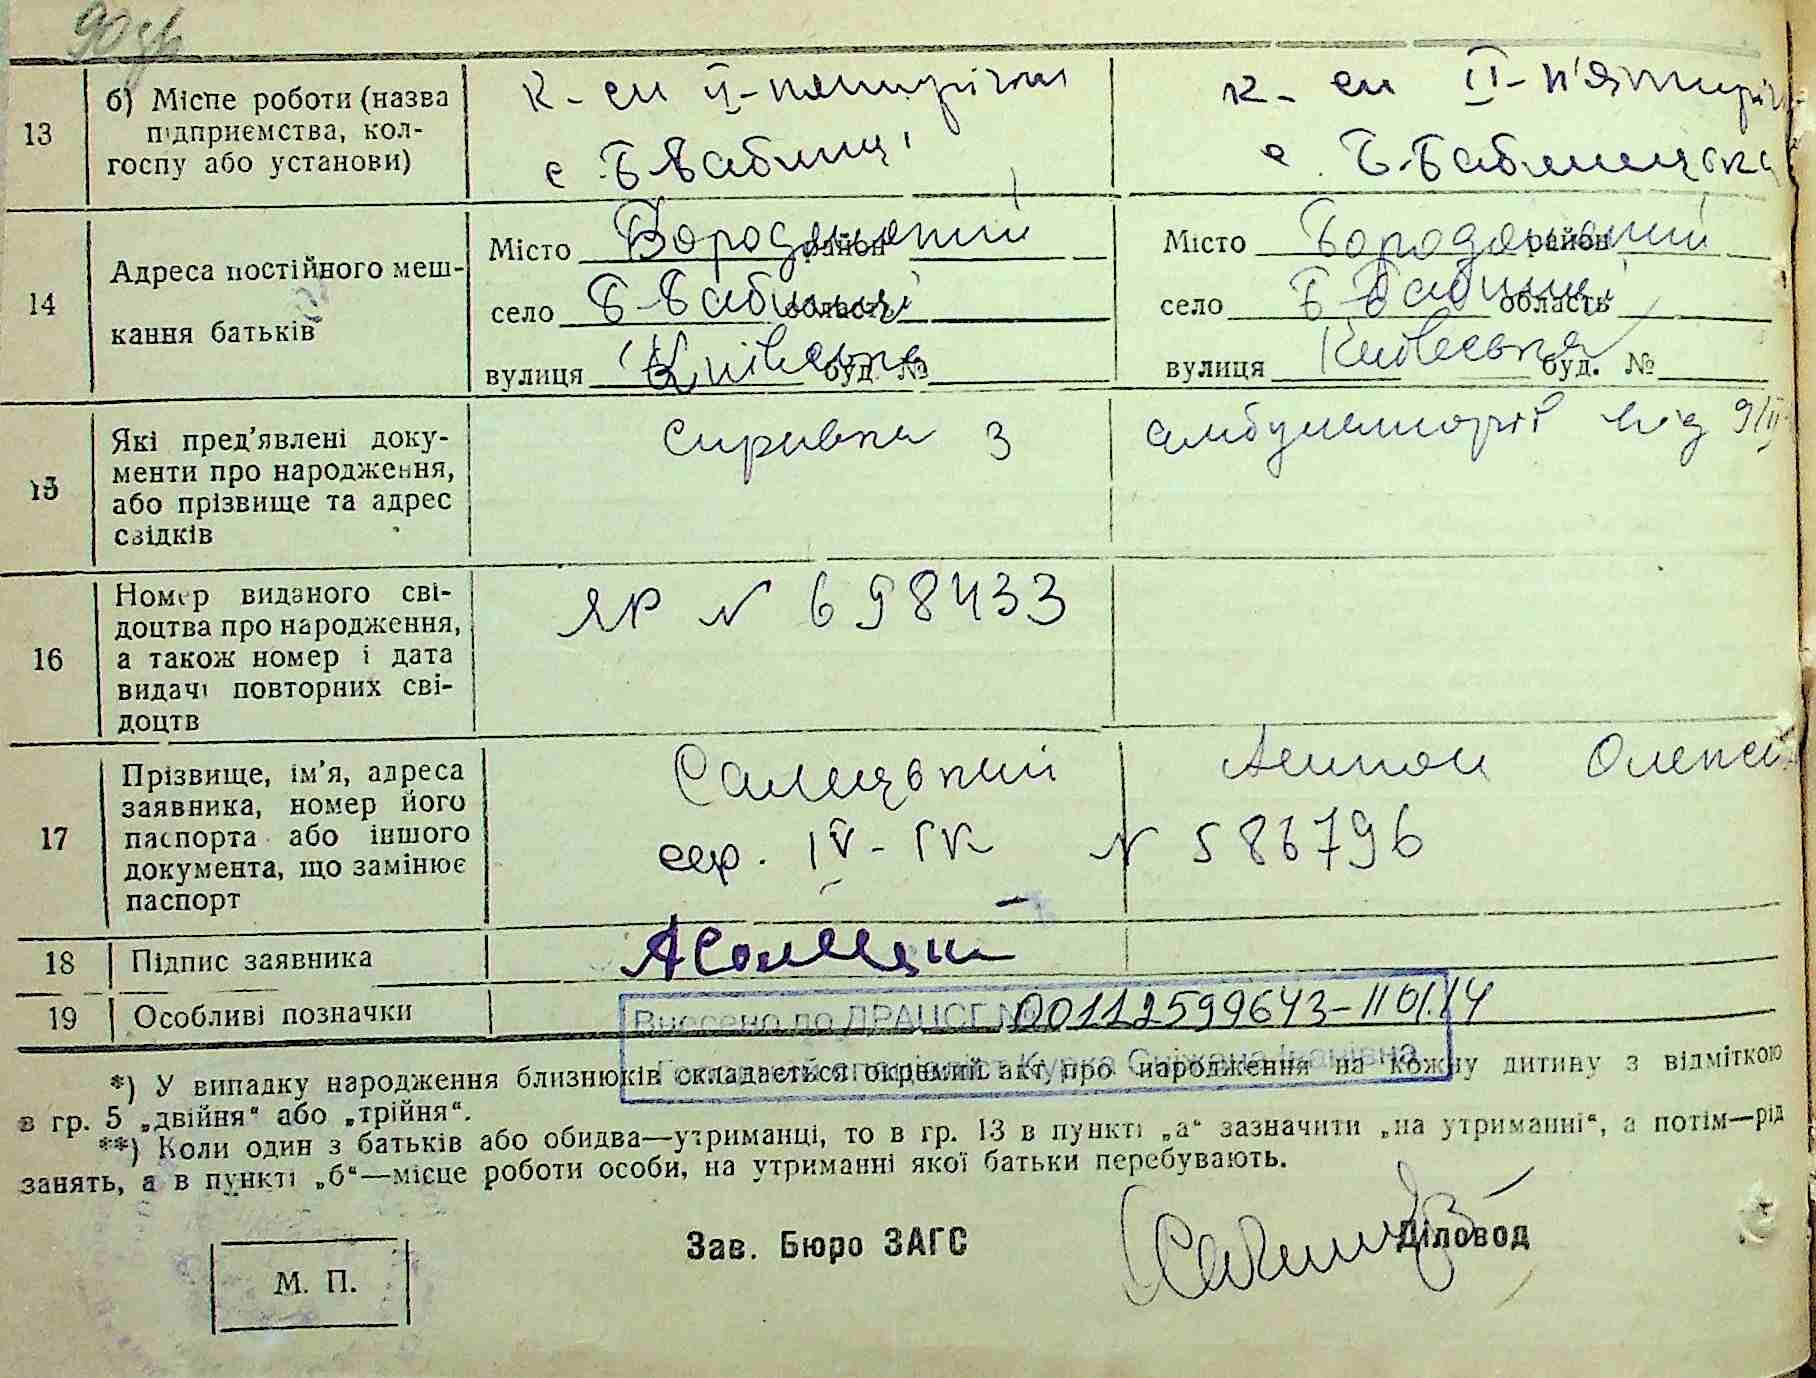 13
б) Місце роботи (назва
підприємства, кол-
госпу або установи)
к-сп ІІ-пятирічки
с Б-Бабинці
к- сп ІІ-п'ятиріч
с Б-Бабинецька
14
Адреса постійного меш-
кання батьків
Місто Бородянський район
село Б-Бабинці область
вулиця Київська буд. №
Місто Бородянський район
село Б-Бабинці область
вулиця Київська буд. №
15
Які пред'явлені доку-
менти про народження,
або прізвище та адрес
свідків
справка з амбулаторії від 9/ІІ
16
Номер виданого сві-
доцтва про народження,
а також номер і дата
видачі повторних сві-
доцтв
ЯР N 698433
17
Прізвище, ім'я, адреса
заявника, номер його
паспорта або іншого
документа, що замінює
паспорт
Антон Олекс
сер. ІV-ГК N 586796
18
Підпис заявника
19
Особливі позначки
Внесено до ДРАЦСГ № 00112599643-110114
Головний спеціаліст Курка Сніжана Іванівна
*) У випадку народження близнюків складається окремий акт про народження на кожну дитину з відміткою
в гр. 5 „двійня“ або „трійня“.
**) Коли один з батьків або обидва—утриманці, то в гр. 13 в пункті „а“ зазначити „на утриманні“, а потім—рід
занять, а в пункті „б“—місце роботи особи, на утриманні якої батьки перебувають.
Зав. Бюро ЗАГС
Діловод
М. П.